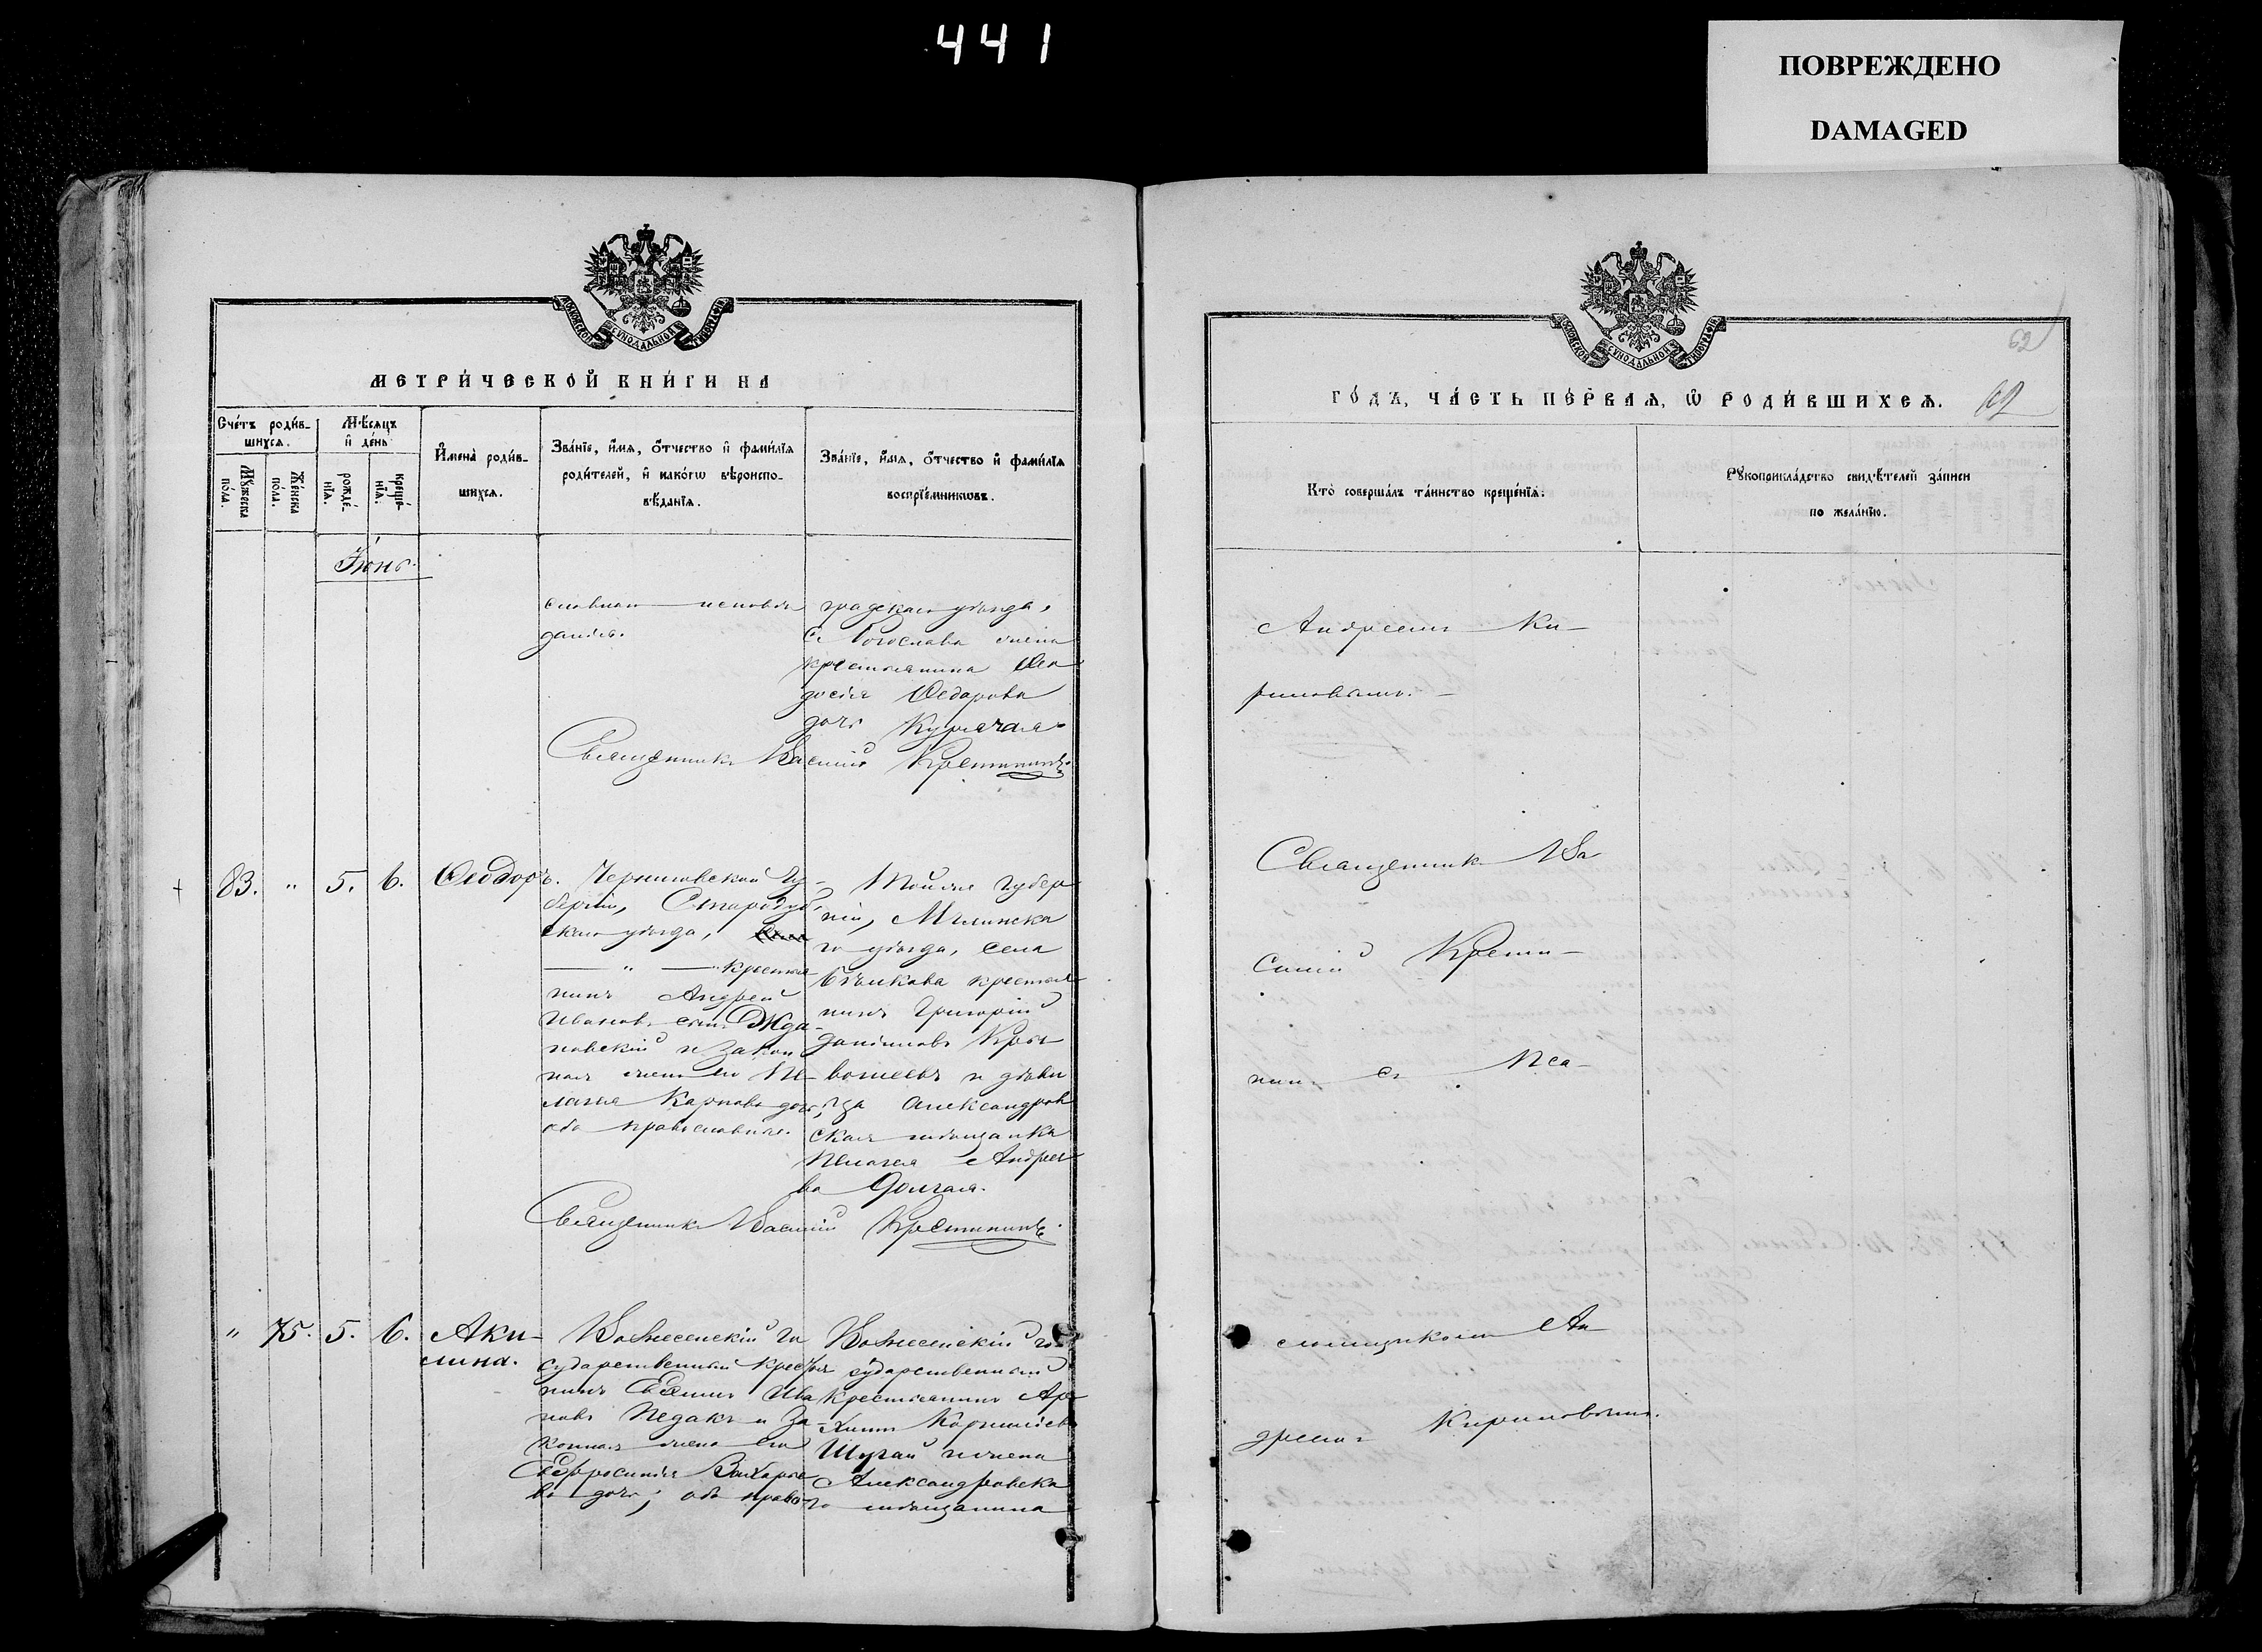 441
ПОВРЕЖДЕНО
DAMAGED
МОСКОВСКОЙ СУНОДАЛЬНОЙ ТИПОГРАФІИ
МЕТРИ́ЧЕСКОЙ КНИ́ГИ НА
Сче́тъ роди́в-
шихсѧ.
Мꙋ́жеска
по́ла.
Же́нска
по́ла.
Мѣ́сѧцъ
и҆ де́нь
рожде́-
нїѧ.
креще́-
нїѧ.
И҆мена̀ роди́в-
шихсѧ.
Зва́нїе, и҆́мѧ, ѻ҆́тчество и҆ фами́лїѧ
роди́телей, и҆ како́гѡ вѣроиспо-
вѣ́данїѧ.
Зва́нїе, и҆́мѧ, ѻ҆́тчество и҆ фами́лїѧ
воспрїе́мникѡвъ.
Іюнь.
славнаго исповѣ
данія.
градскаго уѣзда,
жена
крестьянина Ѳео
досія Ѳедорова
дочь
Священникъ Василій Крестининъ.
83. " 5. 6. Ѳеодоръ.
Черниговской Гу-
берніи, Стародуб-
скаго уѣзда,
— " — крестья
нинъ Андрей
Ивановъ сынъ Жда-
новскій и закон
ная жена его Пе-
лагея Карпова дочь,
оба православные.
Тойже губер
ніи, Мглинска
го уѣзда, села
крестья
нинъ Григорій
Даніиловъ
и дѣви
ца Александров
ская мѣщанка
Пелагея Андрее
ва Долгая.
Священникъ Василій Крестининъ.
" 75. 5. 6. Аки-
лина.
Вознесенскій го
сударственный крестья
нинъ Евѳимъ Ива
новъ Педакъ и за-
конная жена его
Евфросинія Захарое
ва дочь; оба право-
Вознесенскій го-
сударственный
крестьянинъ
Корниліевъ
и жена
Александровска
го мѣщанина
МОСКОВСКОЙ СУНОДАЛЬНОЙ ТИПОГРАФІИ
62
ГО́ДЪ, ЧА́СТЬ ПЕ́РВАѦ, Ѡ҆ РОДИ́ВШИХСѦ.
62
Кто̀ соверша́лъ та́инство креще́нїѧ.
Рꙋкоприкла́дство свидѣ́телей за́писи
по жела́нїю.
Андреемъ Ки-
риловымъ.
Священникъ Ва
силій Крести-
нинъ съ Пса-
ломщикомъ Ан
дреемъ Кириловымъ.